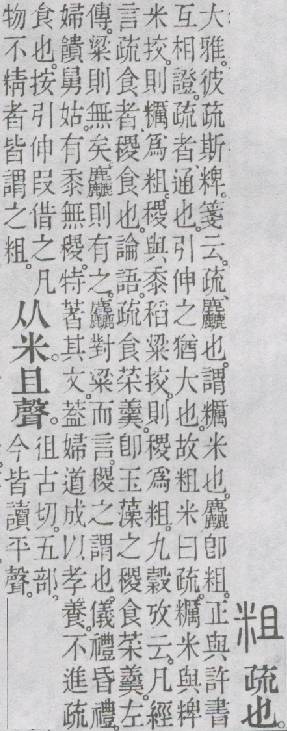 粗 疏也。
大雅。彼疏斯粺。箋云。疏、麤也。謂糲米也。麤卽粗。正與許書
互相證。疏者、通也。引伸之猶大也。故粗米曰疏。糲米與粺
米挍。則糲爲粗。稷與黍稻粱挍。則稷爲粗。九穀攷云。凡經
言疏食者。稷食也。論語。疏食菜羹。卽玉藻之稷食菜羹。左
傳。粱則無矣。麤則有之。麤對粱而言。稷之謂也。儀禮昏禮。
婦饋舅姑。有黍無稷。特著其文。葢婦道成以孝養。不進疏
食也。按引伸叚借之凡
物不精者皆謂之粗。
从米且聲。
徂古切。五部。
今皆讀平聲。